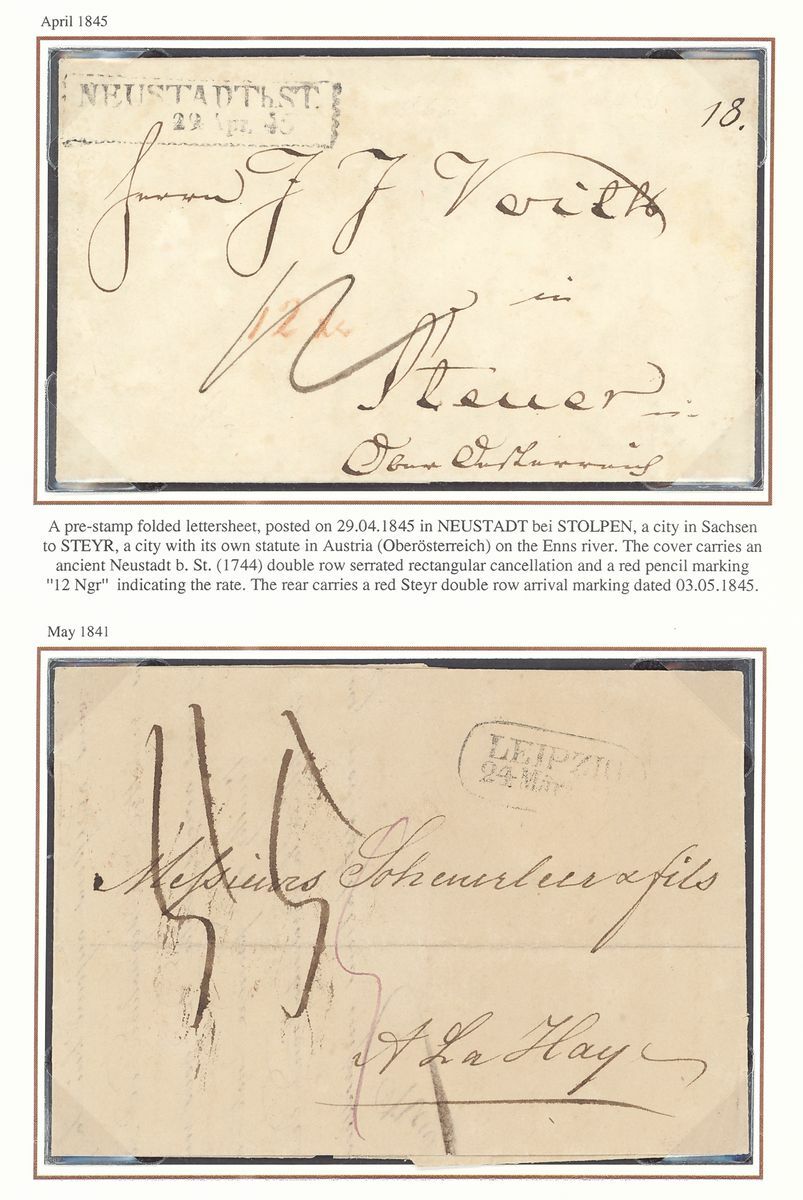 April 1845
NEUSTADT b. ST.
29 Apr. 45
18.
Herrn J J Voith
in
12
Steuer in
Ober Oesterreich
A pre-stamp folded lettersheet, posted on 29.04.1845 in NEUSTADT bei STOLPEN, a city in Sachsen
to STEYR, a city with its own statute in Austria (Oberösterreich) on the Enns river. The cover carries an
ancient Neustadt b. St. (1744) double row serrated rectangular cancellation and a red pencil marking
"12 Ngr" indicating the rate. The rear carries a red Steyr double row arrival marking dated 03.05.1845.
May 1841
LEIPZIG
24 Mar
Messieurs Scheurleer & fils
A La Haye